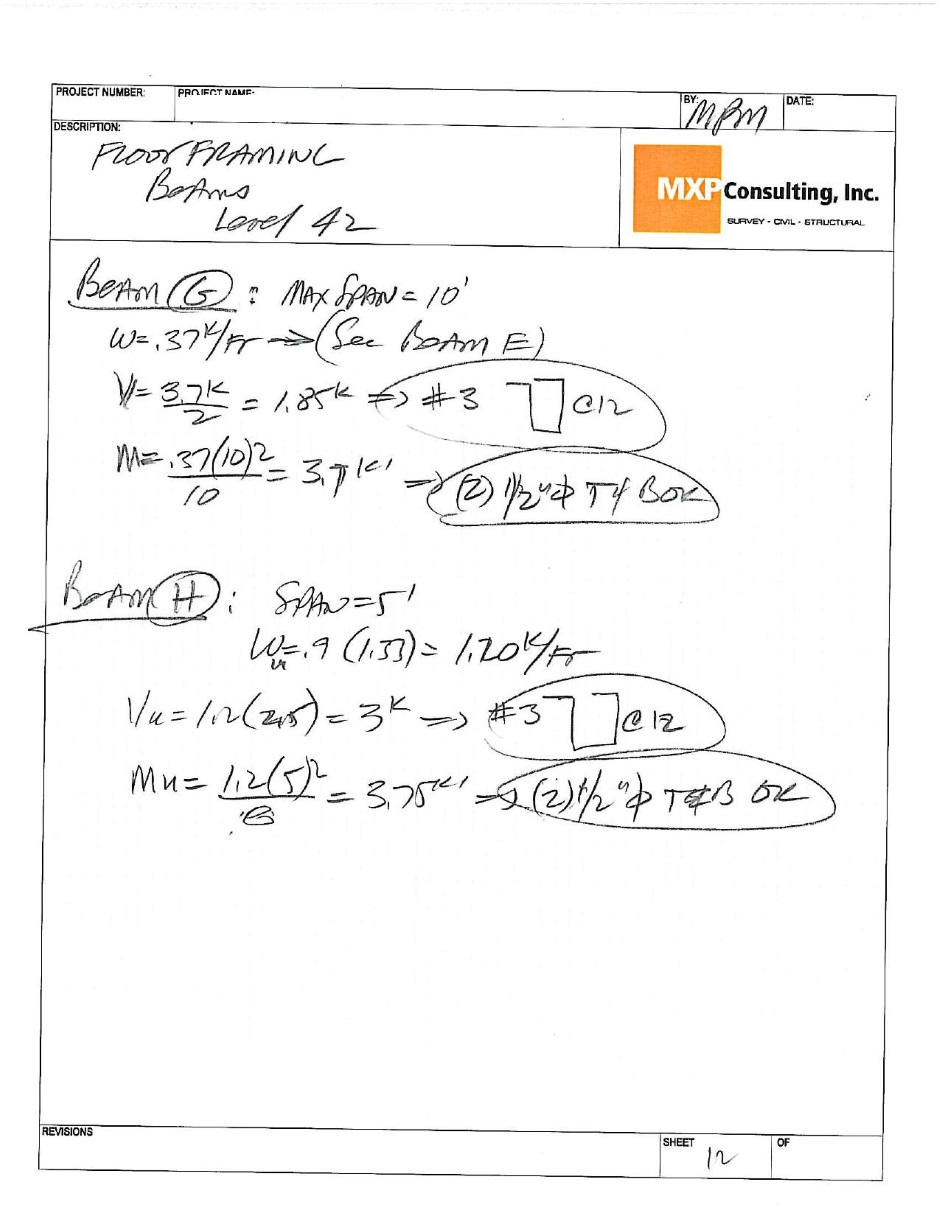 PROJECT NUMBER: PROJECT NAME: BY: MPM DATE:
DESCRIPTION:
FLOOR FRAMING
Beams
Level 42
MXP Consulting, Inc.
SURVEY - CIVIL - STRUCTURAL
BEAM G : MAX SPAN = 10'
W=.37K/FT => (See BEAM E)
V= 3.7K/2 = 1.85K => #3 @12
M= .37(10)2/10 = 3.7K' => (2) 1/2"φ T& B OK
BEAM H : SPAN=5'
Wu=.9 (1.33)= 1.20K/FT
Vu= 1.2(2.5)= 3K => #3 @12
Mu= 1.2(5)2/8 = 3.75K' => (2) 1/2"φ T&B OK
REVISIONS
SHEET 12 OF